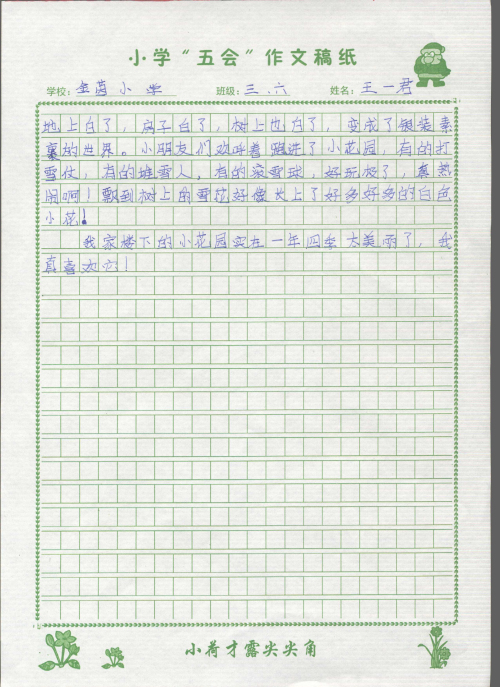 小学“五会”作文稿纸
学校：金茵小学 班级：三.六 姓名：王一君
地上白了，房子白了，树上也白了，变成了银装素
裹的世界。小朋友们欢呼着跑进了小花园，有的打
雪仗，有的堆雪人，有的滚雪球，好玩极了，真热
闹啊！飘到树上的雪花好像长上了好多好多的白色
小花！
我家楼下的小花园实在一年四季太美丽了，我
真喜欢它！
小荷才露尖尖角